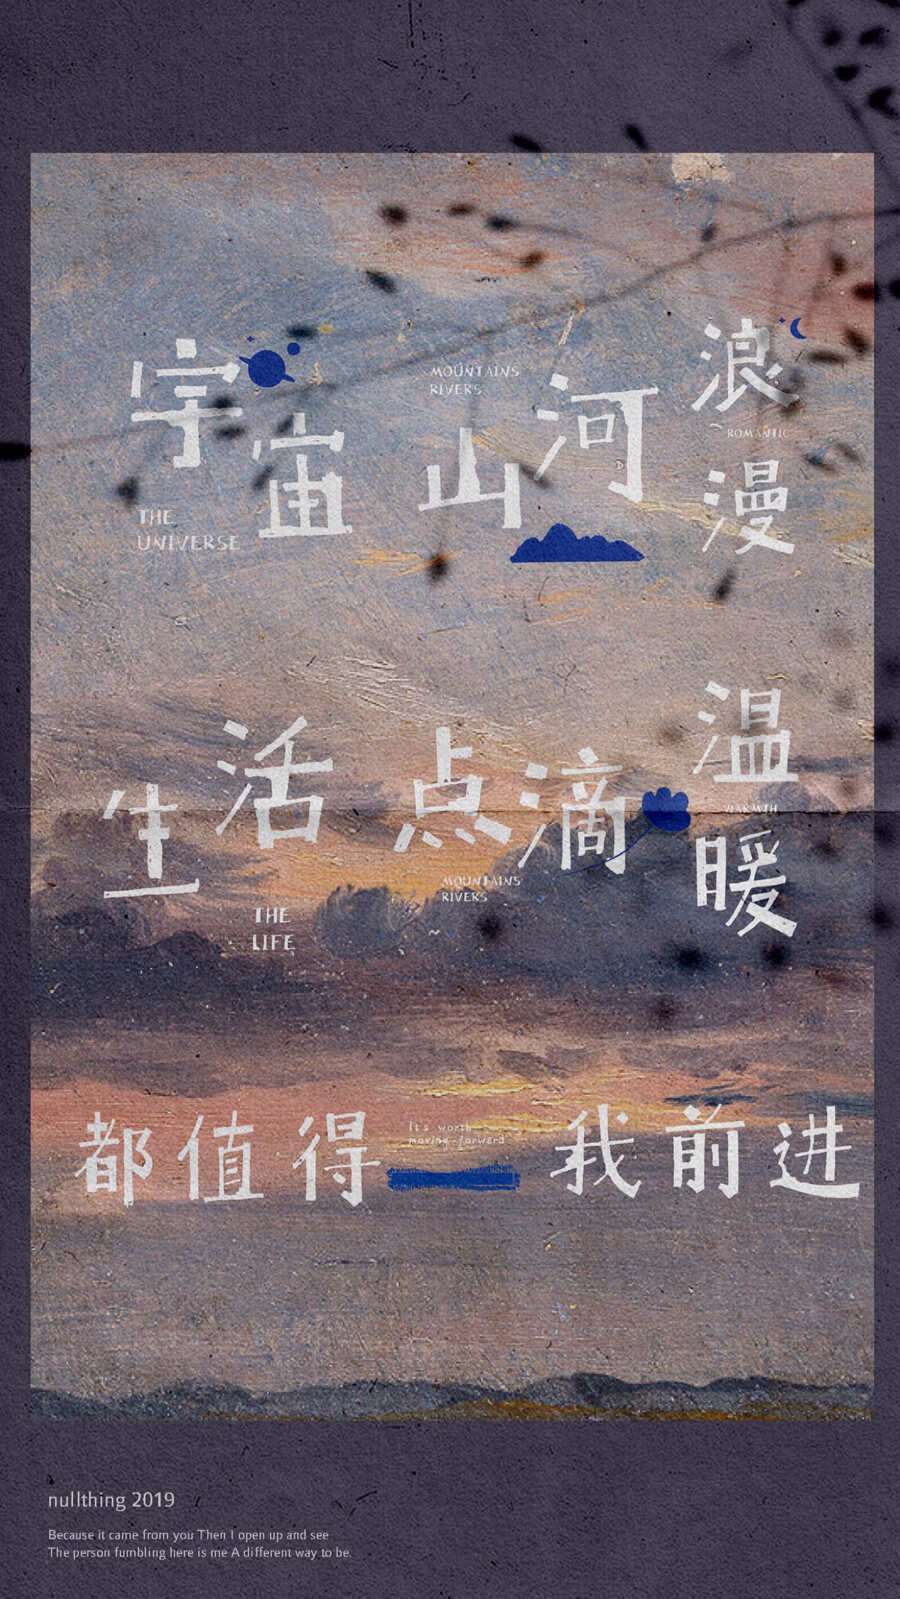 宇宙山河浪漫
MOUNTAINS
RIVERS
ROMANTIC
THE
UNIVERSE
生活点滴温暖
WARMTH
MOUNTAINS
RIVERS
THE
LIFE
都值得我前进
It's worth
moving forward
nullthing 2019
Because it came from you Then I open up and see
The person fumbling here is me A different way to be.